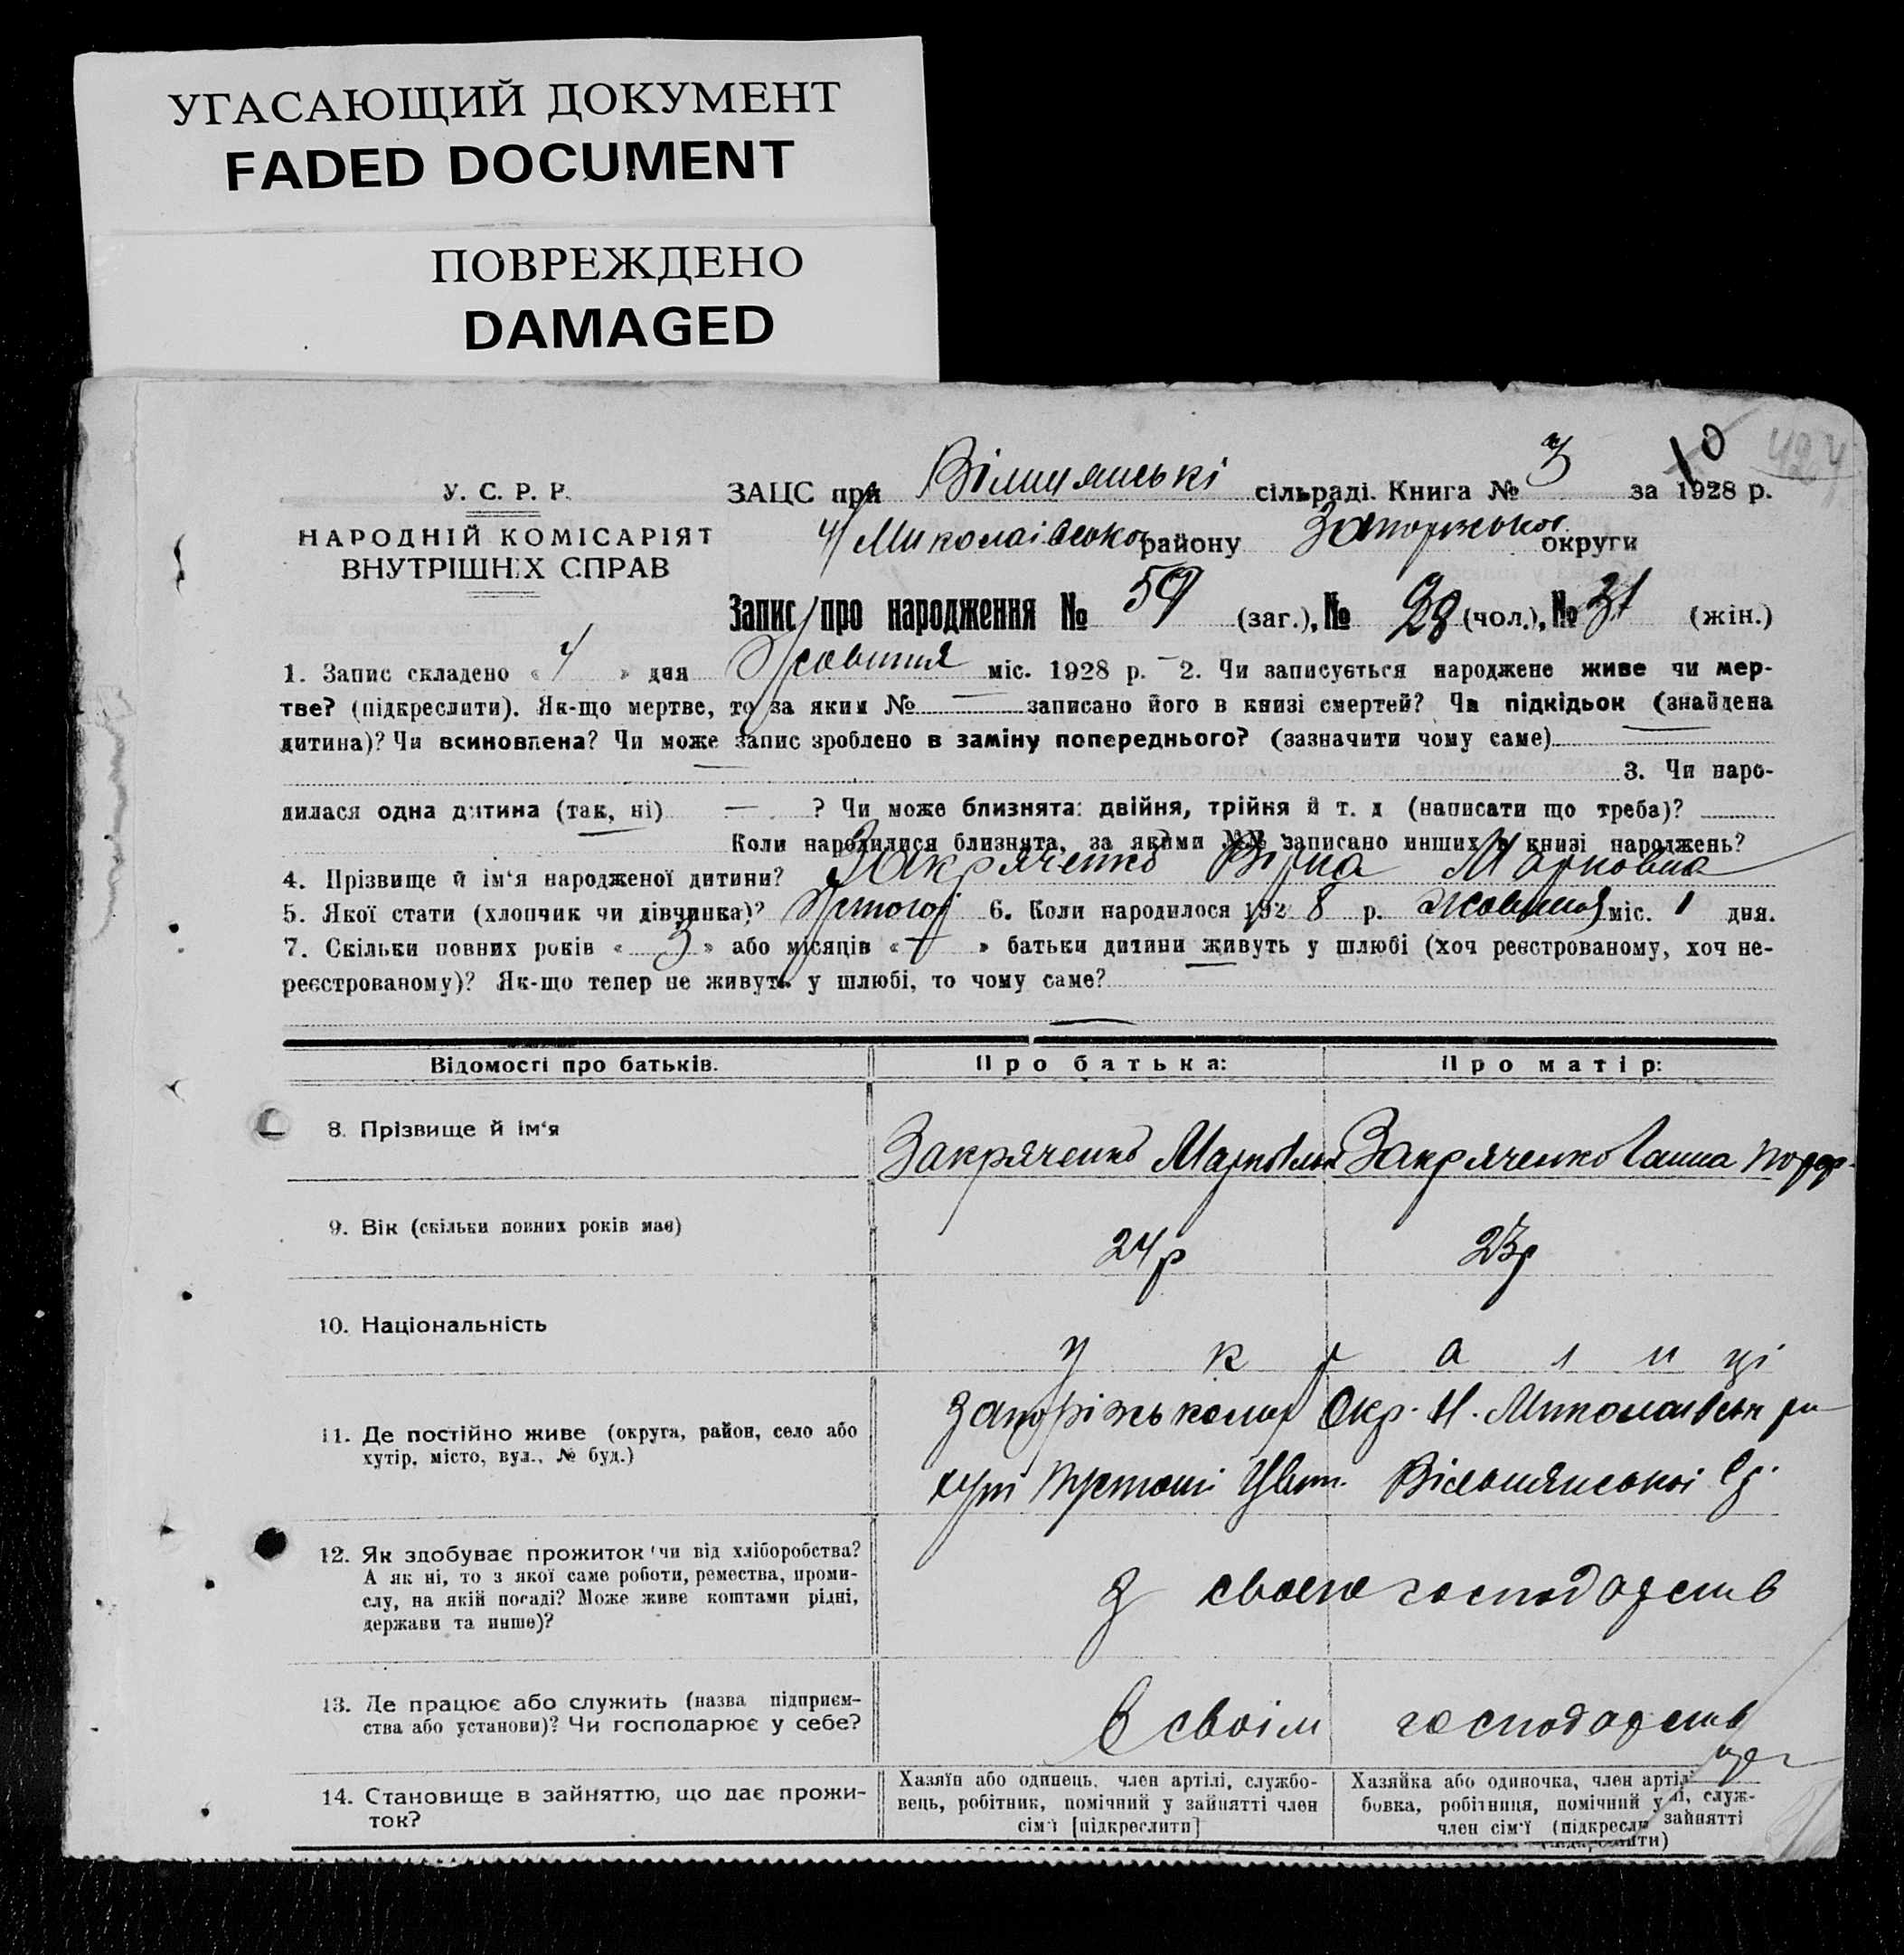 УГАСАЮЩИЙ ДОКУМЕНТ
FADED DOCUMENT
ПОВРЕЖДЕНО
DAMAGED
10 424
У. С. Р. Р.
НАРОДНІЙ КОМІСАРІЯТ
ВНУТРІШНІХ СПРАВ
ЗАЦС при сільраді. Книга № 3 за 1928 р.
району округи
Запис про народження № 59 (заг.), № 28 (чол.), № 31 (жін.)
1. Запис складено « 4 » дня Жовтня міс. 1928 р. 2. Чи записується народжене живе чи мер-
тве? (підкреслити). Як-що мертве, то за яким № — записано його в книзі смертей? Чи підкідьок (знайдена
дитина)? Чи всиновлена? Чи може запис зроблено в заміну попереднього? (зазначити чому саме) —
3. Чи наро-
дилася одна дитина (так, ні) — ? Чи може близнята: двійня, трійня й т. д (написати що треба)?
Коли народилися близнята, за якими №№ записано инших в книзі народжень?
4. Прізвище й ім'я народженої дитини? Закряченко Вірка Марковна
5. Якої стати (хлопчик чи дівчинка)? 6. Коли народилося 1928 р. жовтня міс. 1 дня.
7. Скільки повних років « 3 » або місяців « » батьки дитини живуть у шлюбі (хоч реєстрованому, хоч не-
реєстрованому)? Як-що тепер не живуть у шлюбі, то чому саме?
Відомості про батьків. Про батька: Про матір:
8. Прізвище й ім'я Закряченко Закряченко Ганна
9. Вік (скільки повних років має) 24 р 23 р
10. Національність у к р а ї н ці
11. Де постійно живе (округа, район, село або
хутір, місто, вул., № буд.) Окр. Н.
12. Як здобуває прожиток чи від хліборобства?
А як ні, то з якої саме роботи, ремества, проми-
слу, на якій посаді? Може живе коштами рідні,
держави та инше)? з свого господарств
13. Де працює або служить (назва підприєм-
ства або установи)? Чи господарює у себе? в своїм господарств
14. Становище в зайняттю, що дає прожи-
ток?
Хазяїн або одинець, член артілі, службо-
вець, робітник, помічний у зайнятті член
сім'ї [підкреслити]
Хазяйка або одиночка, член артілі, служ-
бовка, робітниця, помічний у зайнятті
член сім'ї (підкреслити)